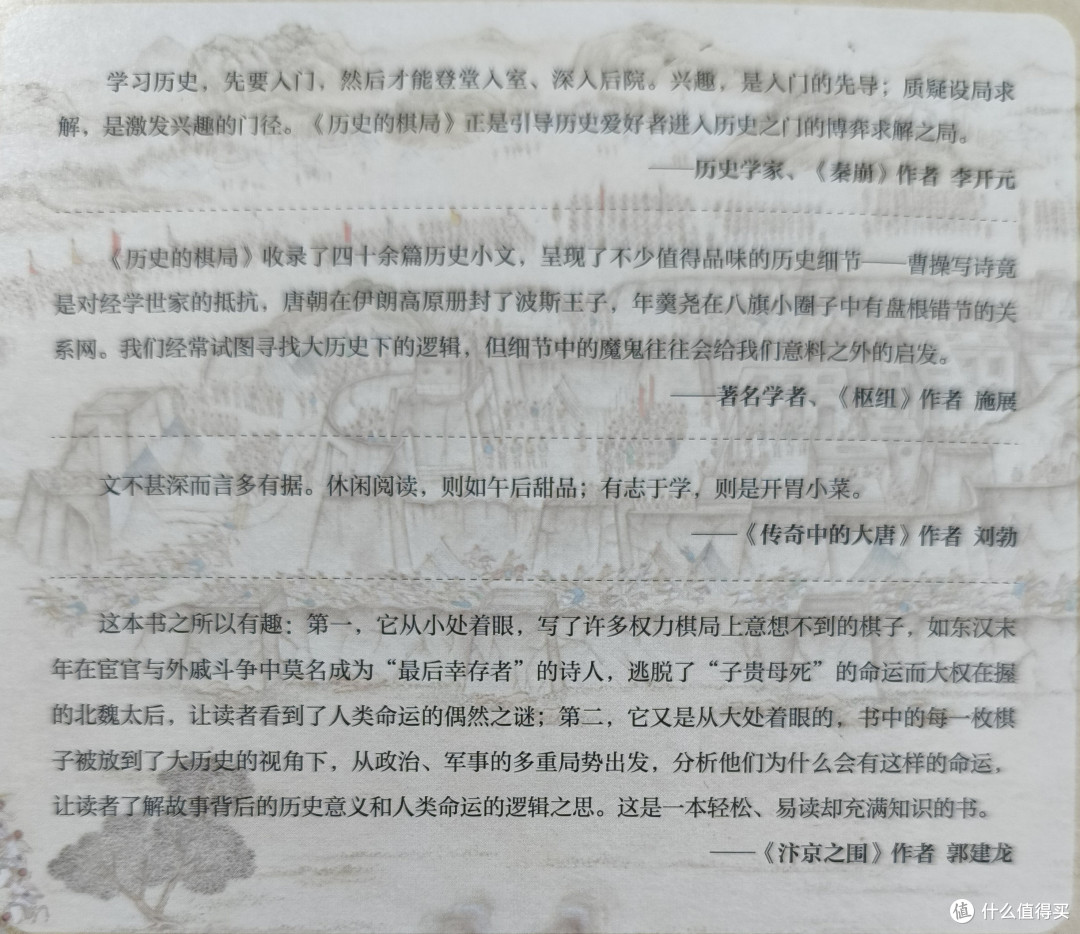 学习历史，先要入门，然后才能登堂入室、深入后院。兴趣，是入门的先导；质疑设局求
解，是激发兴趣的门径。《历史的棋局》正是引导历史爱好者进入历史之门的博弈求解之局。
——历史学家、《秦崩》作者 李开元
《历史的棋局》收录了四十余篇历史小文，呈现了不少值得品味的历史细节——曹操写诗竟
是对经学世家的抵抗，唐朝在伊朗高原册封了波斯王子，年羹尧在八旗小圈子中有盘根错节的关
系网。我们经常试图寻找大历史下的逻辑，但细节中的魔鬼往往会给我们意料之外的启发。
——著名学者、《枢纽》作者 施展
文不甚深而言多有据。休闲阅读，则如午后甜品；有志于学，则是开胃小菜。
——《传奇中的大唐》作者 刘勃
这本书之所以有趣：第一，它从小处着眼，写了许多权力棋局上意想不到的棋子，如东汉末
年在宦官与外戚斗争中莫名成为“最后幸存者”的诗人，逃脱了“子贵母死”的命运而大权在握
的北魏太后，让读者看到了人类命运的偶然之谜；第二，它又是从大处着眼的，书中的每一枚棋
子被放到了大历史的视角下，从政治、军事的多重局势出发，分析他们为什么会有这样的命运，
让读者了解故事背后的历史意义和人类命运的逻辑之思。这是一本轻松、易读却充满知识的书。
——《汴京之围》作者 郭建龙
值 什么值得买